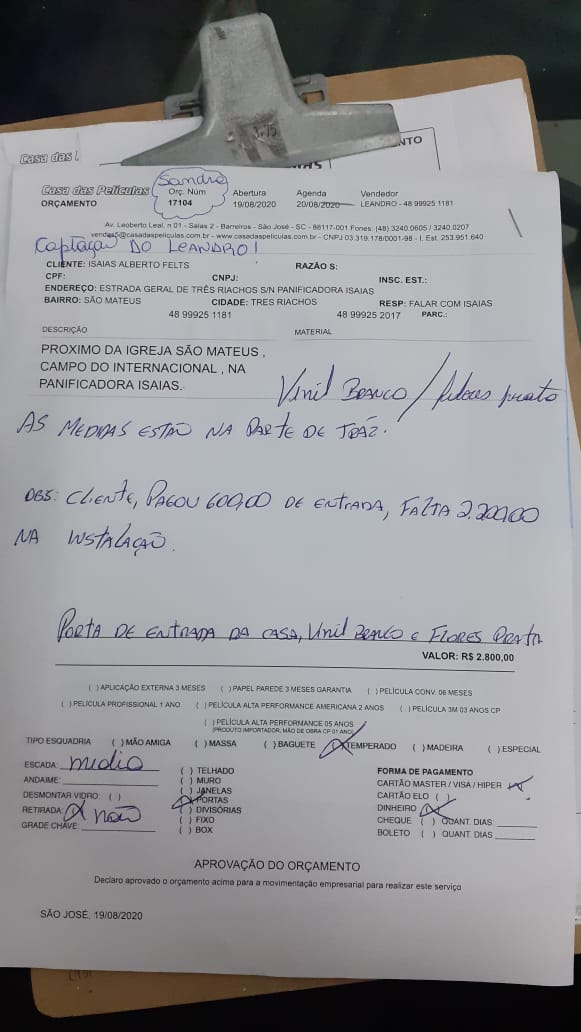 3.75
Casa das
NTO
Casa das Películas
Sandro
Orç. Núm
Abertura
Agenda
Vendedor
ORÇAMENTO
17104
19/08/2020
20/08/2020
LEANDRO - 48 99925 1181
Av. Leoberto Leal, n 01 - Salas 2 - Barreiros - São José - SC - 88117-001 Fones: (48) 3240.0605 / 3240.0207
vendas5@casadaspeliculas.com.br - www.casadaspeliculas.com.br - CNPJ 03.319.178/0001-98 - I. Est. 253.951.640
Captação DO LEANDRO!
CLIENTE: ISAIAS ALBERTO FELTS
RAZÃO S:
CPF:
CNPJ:
INSC. EST.:
ENDEREÇO: ESTRADA GERAL DE TRÊS RIACHOS S/N PANIFICADORA ISAIAS
BAIRRO: SÃO MATEUS
CIDADE: TRES RIACHOS
RESP: FALAR COM ISAIAS
48 99925 1181
48 99925 2017
PARC.:
DESCRIÇÃO
MATERIAL
PROXIMO DA IGREJA SÃO MATEUS ,
CAMPO DO INTERNACIONAL , NA
PANIFICADORA ISAIAS.
Vinil BRANCO / preto
AS MEDIDAS ESTÃO NA PARTE DE TRÁZ.
OBS: CLIENTE, PAGOU 600,00 DE ENTRADA, FALTA 2.200,00
NA INSTALAÇÃO.
PORTA DE ENTRADA DA CASA, Vinil BRANCO E FLORES PRETA
VALOR: R$ 2.800,00
( ) APLICAÇÃO EXTERNA 3 MESES ( ) PAPEL PAREDE 3 MESES GARANTIA ( ) PELÍCULA CONV. 06 MESES
( ) PELÍCULA PROFISSIONAL 1 ANO ( ) PELÍCULA ALTA PERFORMANCE AMERICANA 2 ANOS ( ) PELÍCULA 3M 03 ANOS CP
( ) PELÍCULA ALTA PERFORMANCE 05 ANOS
(PRODUTO IMPORTADOR, MÃO DE OBRA CP 01 ANO)
TIPO ESQUADRIA ( ) MÃO AMIGA ( ) MASSA ( ) BAGUETE (X) TEMPERADO ( ) MADEIRA ( ) ESPECIAL
ESCADA: medio
ANDAIME:
DESMONTAR VIDRO: ( )
RETIRADA: (X) não
GRADE CHAVE:
( ) TELHADO
( ) MURO
( ) JANELAS
(X) PORTAS
( ) DIVISÓRIAS
( ) FIXO
( ) BOX
FORMA DE PAGAMENTO
CARTÃO MASTER / VISA / HIPER (X)
CARTÃO ELO ( )
DINHEIRO (X)
CHEQUE ( ) QUANT. DIAS:
BOLETO ( ) QUANT. DIAS
APROVAÇÃO DO ORÇAMENTO
Declaro aprovado o orçamento acima para a movimentação empresarial para realizar este serviço
SÃO JOSÉ, 19/08/2020